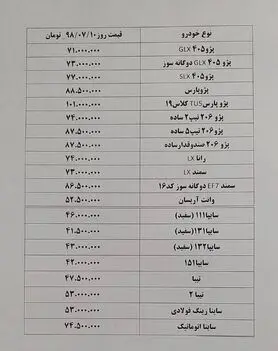 نوع خودرو قیمت روز ۹۸/۰۷/۱۰ تومان
پژو ۴۰۵ GLX ۷۱.۰۰۰.۰۰۰
پژو ۴۰۵ GLX دوگانه سوز ۷۳.۰۰۰.۰۰۰
پژو ۴۰۵ SLX ۷۷.۰۰۰.۰۰۰
پژوپارس ۸۸.۵۰۰.۰۰۰
پژو پارس TU5 کلاس۱۹ ۱۰۱.۰۰۰.۰۰۰
پژو ۲۰۶ تیپ۲ ساده ۷۴.۰۰۰.۰۰۰
پژو ۲۰۶ تیپ۵ ساده ۸۷.۵۰۰.۰۰۰
پژو ۲۰۶ صندوقدارساده ۸۷.۵۰۰.۰۰۰
رانا LX ۷۴.۰۰۰.۰۰۰
سمند LX ۷۳.۰۰۰.۰۰۰
سمند EF7 دوگانه سوز کد۱۶ ۸۶.۵۰۰.۰۰۰
وانت آریسان ۵۲.۵۰۰.۰۰۰
سایپا۱۱۱ (سفید) ۴۶.۰۰۰.۰۰۰
سایپا۱۳۱ (سفید) ۴۱.۵۰۰.۰۰۰
سایپا۱۳۲ (سفید) ۴۳.۰۰۰.۰۰۰
سایپا۱۵۱ ۴۲.۰۰۰.۰۰۰
تیبا ۴۷.۵۰۰.۰۰۰
تیبا ۲ ۵۳.۰۰۰.۰۰۰
ساینا رینگ فولادی ۵۳.۰۰۰.۰۰۰
ساینا اتوماتیک ۷۴.۵۰۰.۰۰۰